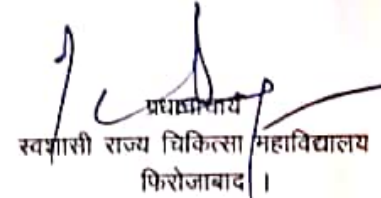 प्रधानाचार्य
स्वशासी राज्य चिकित्सा महाविद्यालय
फिरोजाबाद ।